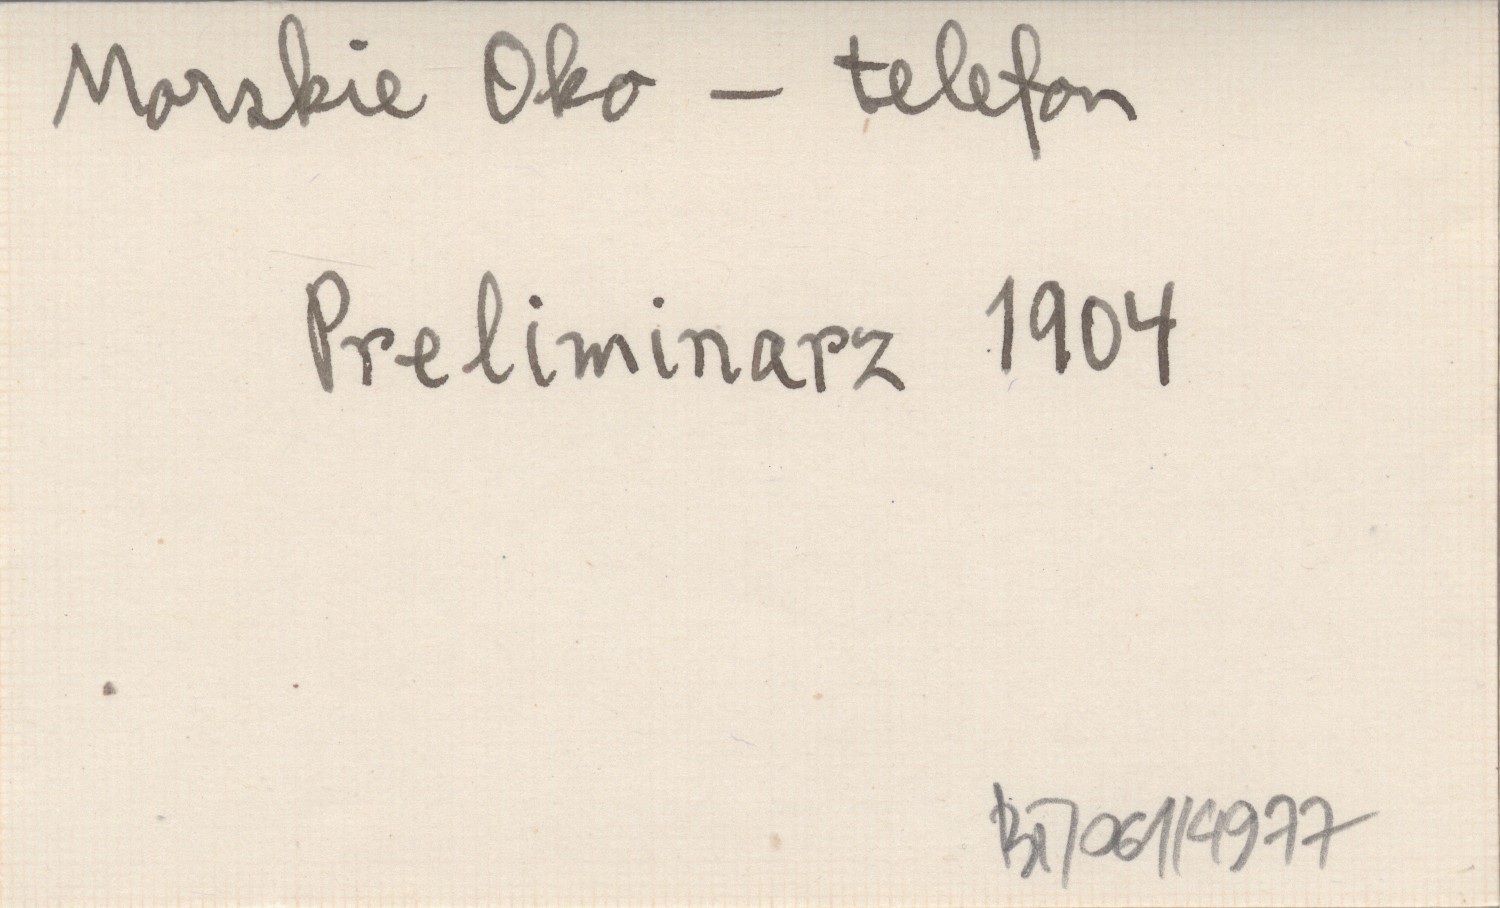 Morskie Oko - telefon
Preliminarz 1904